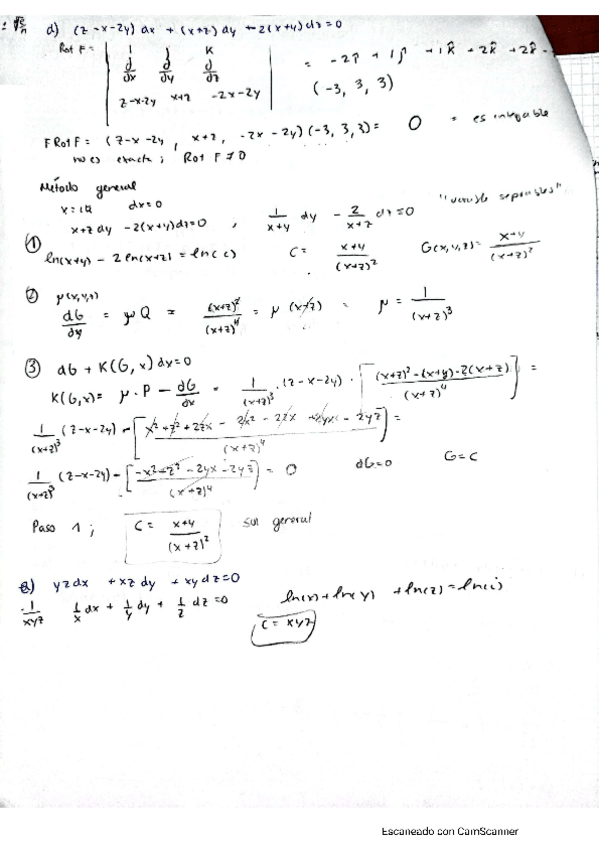 d) (z-x-2y) dx + (x+z) dy - 2(x+y) dz = 0
Rot F = | i j k | = -2î + 1ĵ + 1k̂ + 2k̂ + 2ĵ -
d/dx d/dy d/dz
z-x-2y x+z -2x-2y
(-3, 3, 3)
F Rot F = (z-x-2y, x+z, -2x-2y)(-3, 3, 3) = 0 = es integrable
no es exacta; Rot F ≠ 0
Método general
x = dx=0
x+z dy - 2(x+y)dz=0, 1/(x+y) dy - 2/(x+z) dz=0 "variable separables"
① ln(x+y) - 2ln(x+z) = ln(c) C = (x+y)/(x+z)² G(x,y,z) = (x+y)/(x+z)²
② μ(x,y,z)
dG/dy = μQ = (x+z)²/(x+z)⁴ = μ(x+z) = μ = 1/(x+z)³
③ dG + K(G,x)dx=0
K(G,x) = μ·P - dG/dx = 1/(x+z)³ · (z-x-2y) - [((x+z)² - (x+y)·2(x+z))/(x+z)⁴] =
1/(x+z)³ (z-x-2y) - [(x²+z²+2zx - 2x² - 2zx - 2yx - 2yz)/(x+z)⁴] =
1/(x+z)³ (z-x-2y) - [(-x²+z²-2yx-2yz)/(x+z)⁴] = 0 dG=0 G=C
Paso 1; C = (x+y)/(x+z)² sol general
e) yzdx + xzdy + xydz=0
·1/xyz 1/x dx + 1/y dy + 1/z dz=0 ln(x)+ln(y) + ln(z) = ln(c)
C = xyz
Escaneado con CamScanner